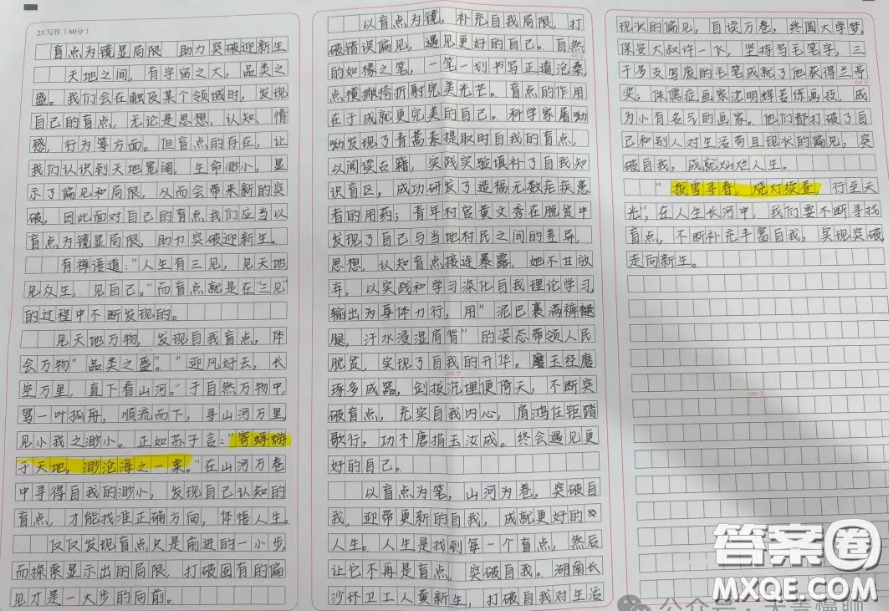 23.写作(60分)
盲点为镜显局限 助力突破迎新生
天地之间，有宇宙之大，品类之
盛。我们会在触及某个领域时，发现
自己的盲点，无论是思想、认知、情
感、行为等方面。但盲点的存在，让
我们认识到天地宽阔，生命渺小，显
示了偏见和局限，从而会带来新的突
破，因此面对自己的盲点，我们应当以
盲点为镜显局限，助力突破迎新生。
有禅语道："人生有三见，见天地
见众生，见自己。"而盲点就是在"三见"
的过程中不断发现的。
见天地万物，发现自我盲点，体
会万物"品类之盛"。"迎风好去，长
空万里，直下看山河。"于自然万物中，
驾一叶孤舟，顺流而下，寻山河万里
见小我之渺小。正如苏子言："寄蜉蝣
于天地，渺沧海之一粟。"在山河万卷
中寻得自我的渺小，发现自己认知的
盲点，才能找准正确方向，体悟人生。
仅仅发现盲点只是前进的一小步，
而探索显示出的局限，打破固有的偏
见才是一大步的向前。
以盲点为镜，补充自我局限，打
破错误偏见，遇见更好的自己。自然
的如椽之笔，一笔一划书写正道沧桑
点横撇捺折射完美光芒。盲点的作用
在于成就更完美的自己。科学家屠呦
呦发现了青蒿素提取时自我的盲点，
以阅读古籍，实践实验填补了自我知
识盲区，成功研发了造福无数疟疾患
者的用药；青年村官黄文秀在脱贫中
发现了自己与当地村民之间的差异，
思想、认知盲点接连暴露，她不甘放
弃，以实践和学习深化自我理论学习，
输出为身体力行，用"泥巴裹满裤腿
腿，汗水浸湿肩背"的姿态带领人民
脱贫，实现了自我的升华。磨玉经磨
琢多成器，剑拔沉埋便倚天，不断突
破盲点，充实自我内心，肩鸿任钜踏
歌行，功不唐捐玉汝成。终会遇见更
好的自己。
以盲点为笔，山河为卷，突破自
我，迎带更新的自我，成就更好的
人生。人生是找到每一个盲点，然后
让它不再是盲点，突破自我。湖南长
沙环卫工人黄新生，打破自我对生活
现状的偏见，自读万卷，终圆大学梦，
保安大叔许一飞，坚持写毛笔字，三
千多支写废的毛笔成就了他获得兰亭
奖；保儒任画家沈明辉苦练画技，成
为小有名气的画家。他们都打破了自
己和别人对生活苟且现状的偏见，突
破自我，成就灿烂人生。
"拨雪寻春，烧灯续昼，行至天
光"，在人生长河中，我们要不断寻找
盲点，不断补充丰富自我，实现突破
走向新生。
答案圈
MXQE.COM
公众号